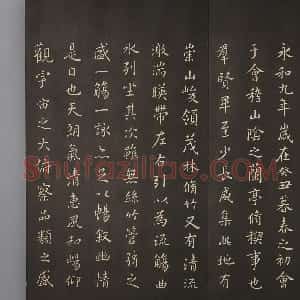 永和九年歲在癸丑暮春之初會
于會稽山陰之蘭亭脩稧事也
羣賢畢至少長咸集此地有
崇山峻領茂林脩竹又有清流
激湍暎帶左右引以為流觴曲
水列坐其次雖無絲竹管弦之
盛一觴一詠亦足以暢敘幽情
是日也天朗氣清惠風和暢仰
觀宇宙之大俯察品類之盛
Shufaziliao.com